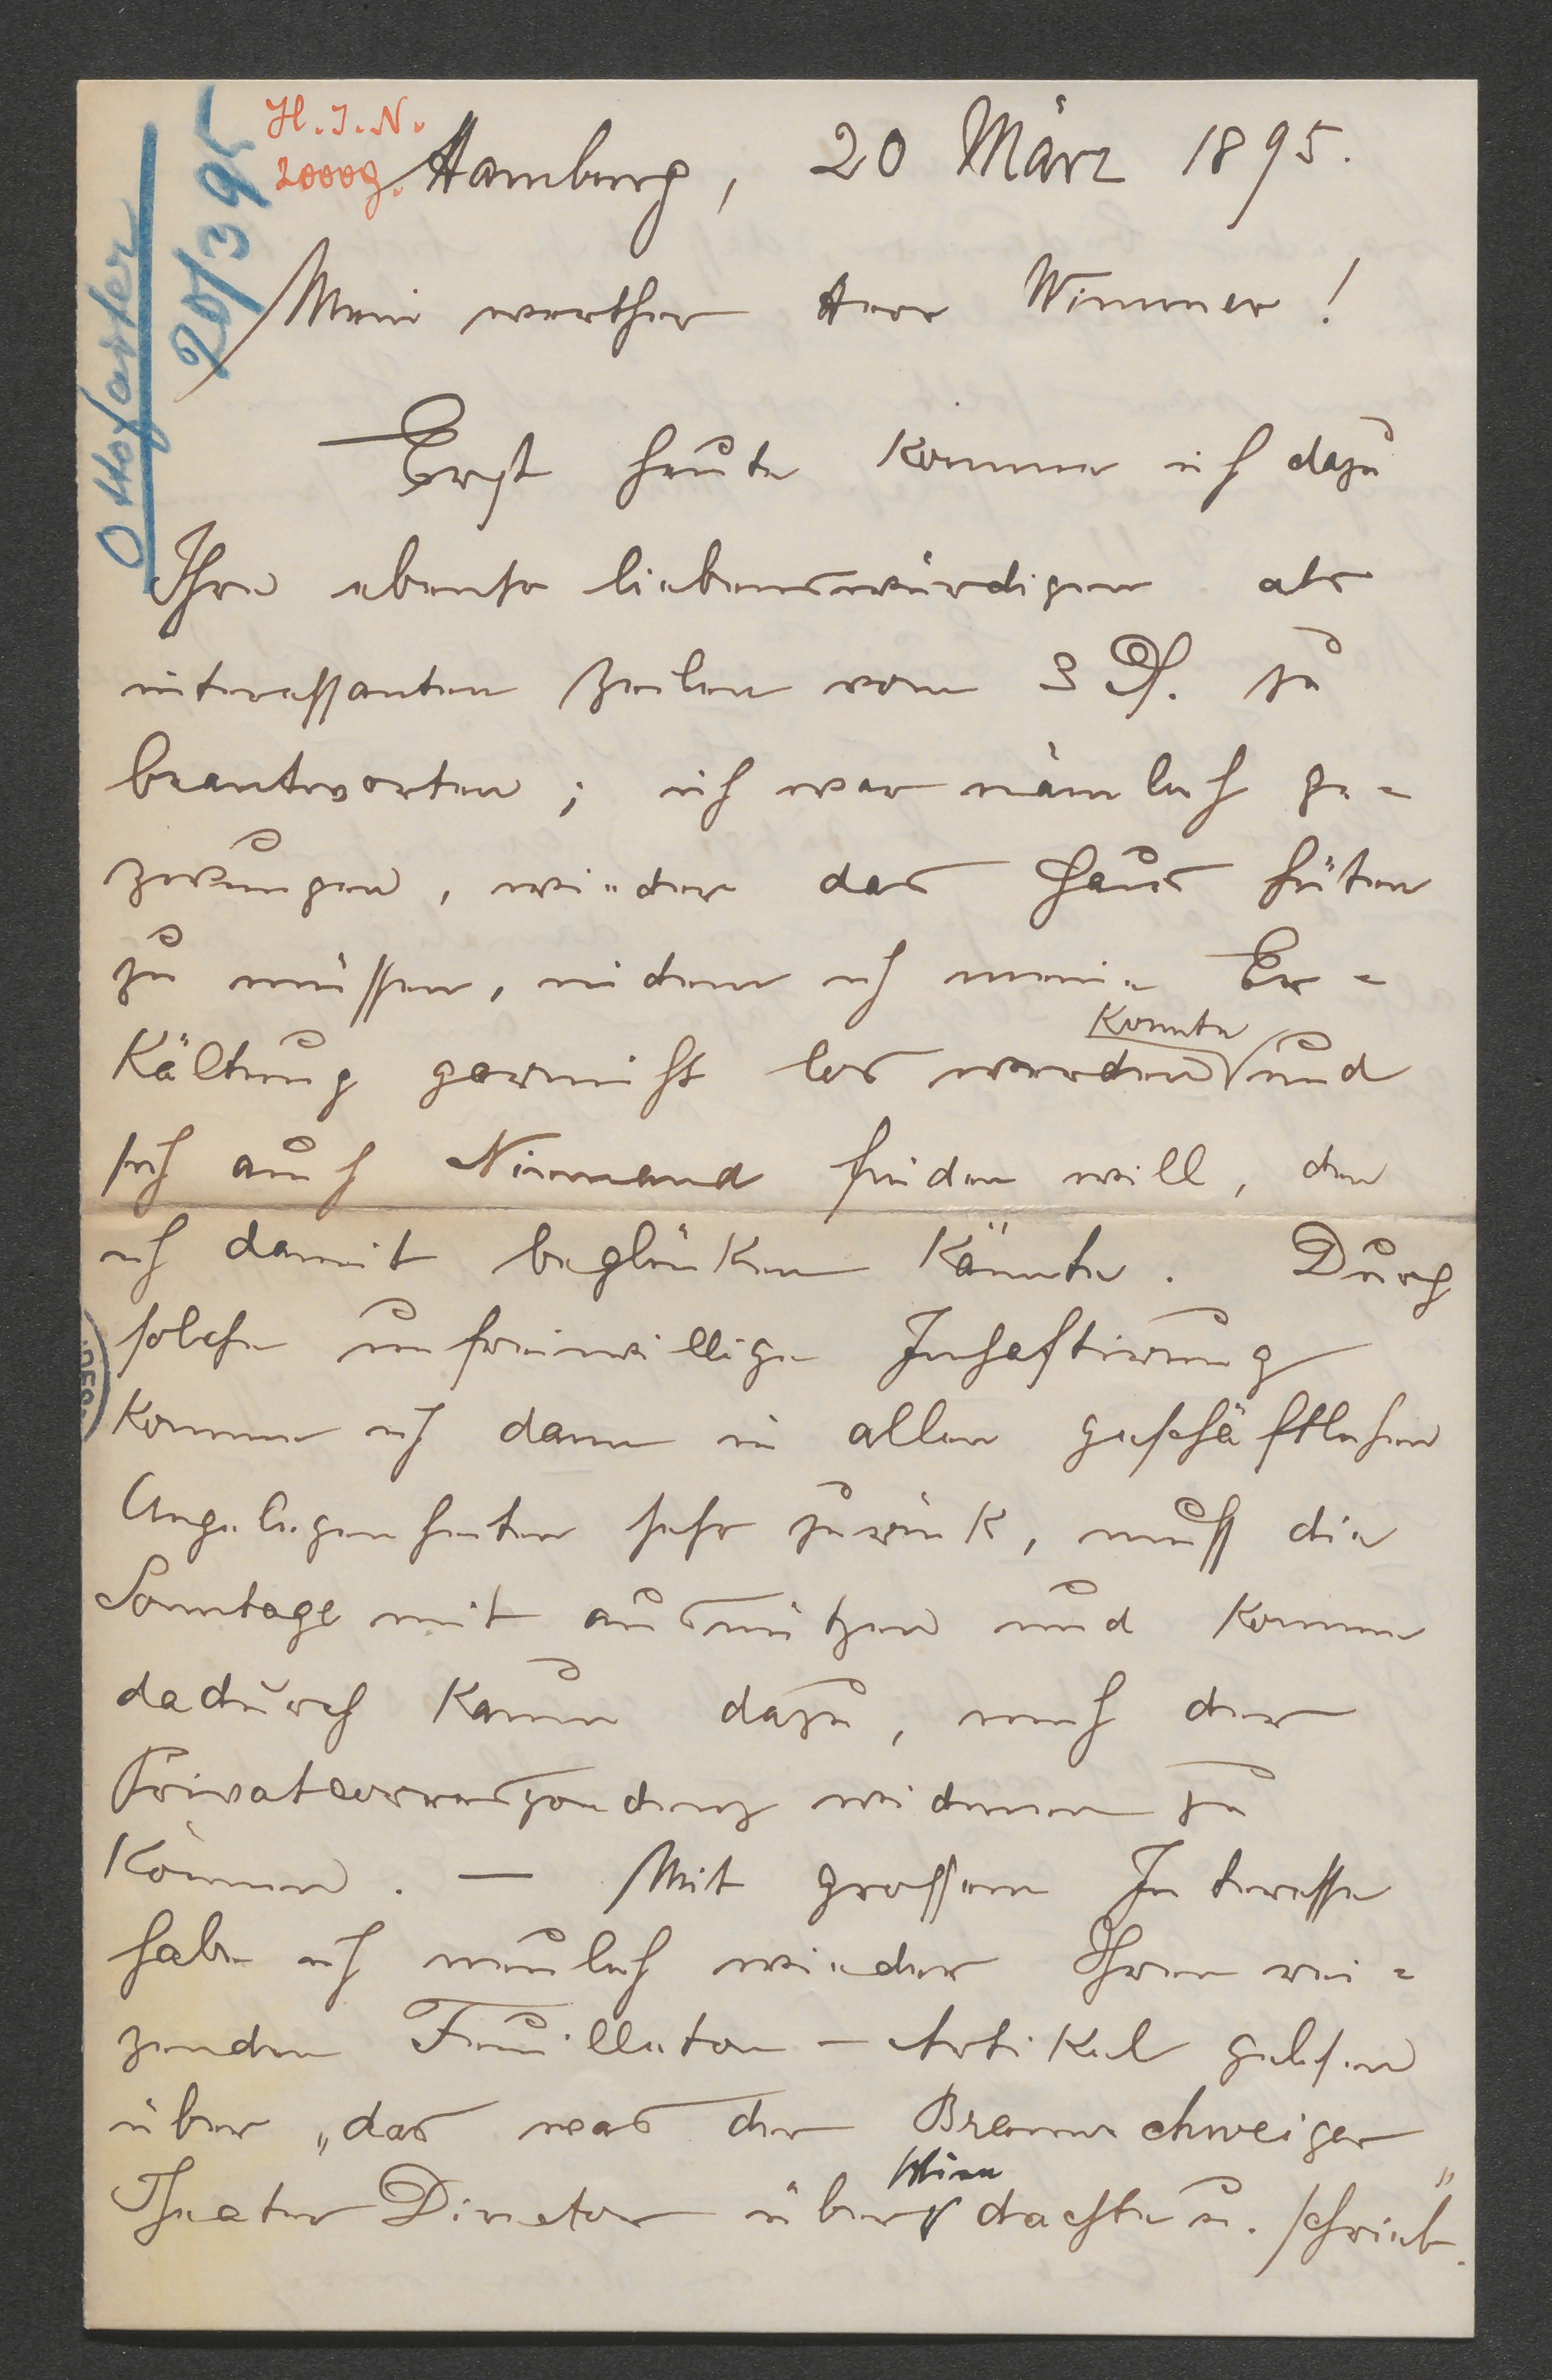 H.I.N.
20009.
Hamburg, 20 März 1895.
O Hofarter
20/3 95
Mein werther Herr Wimmer!
Erst heute komme ich dazu
Ihre ebenso liebenswürdigen als
interessanten Zeilen vom 3 Ds. zu
beantworten; ich war nämlich ge-
zwungen, wieder das Haus hüten
zu müssen, indem ich meine Er-
kältung garnicht los werden konnte und
sich auch Niemand finden will, den
ich damit beglücken könnte. Durch
solche unfreiwillige Inhaftirung
komme ich dann in allen geschäftlichen
Angelegenheiten sehr zurück, muss die
Sonntage mit ausnützen und komme
dadurch kaum dazu, mich der
Privatcorrespondenz widmen zu
können. — Mit grossem Interesse
habe ich neulich wieder Ihren rei-
zenden Feuilleton-Artikel gelesen
über „das was der Braunschweiger
Theater Director über Wien dachte u. schrieb".